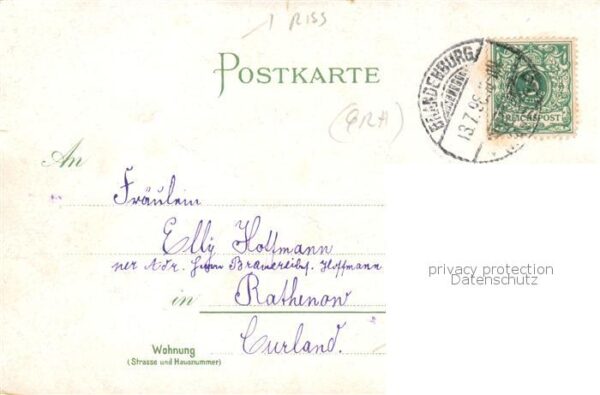 1 RISS
POSTKARTE
BRANDENBURG
13.7.96.
REICHSPOST
(GRA)
An
Fräulein
Elly Hoffmann
per Adr. Herrn Brauereibes. Hoffmann
in Rathenow
Curland.
Wohnung
(Strasse und Hausnummer)
privacy protection
Datenschutz